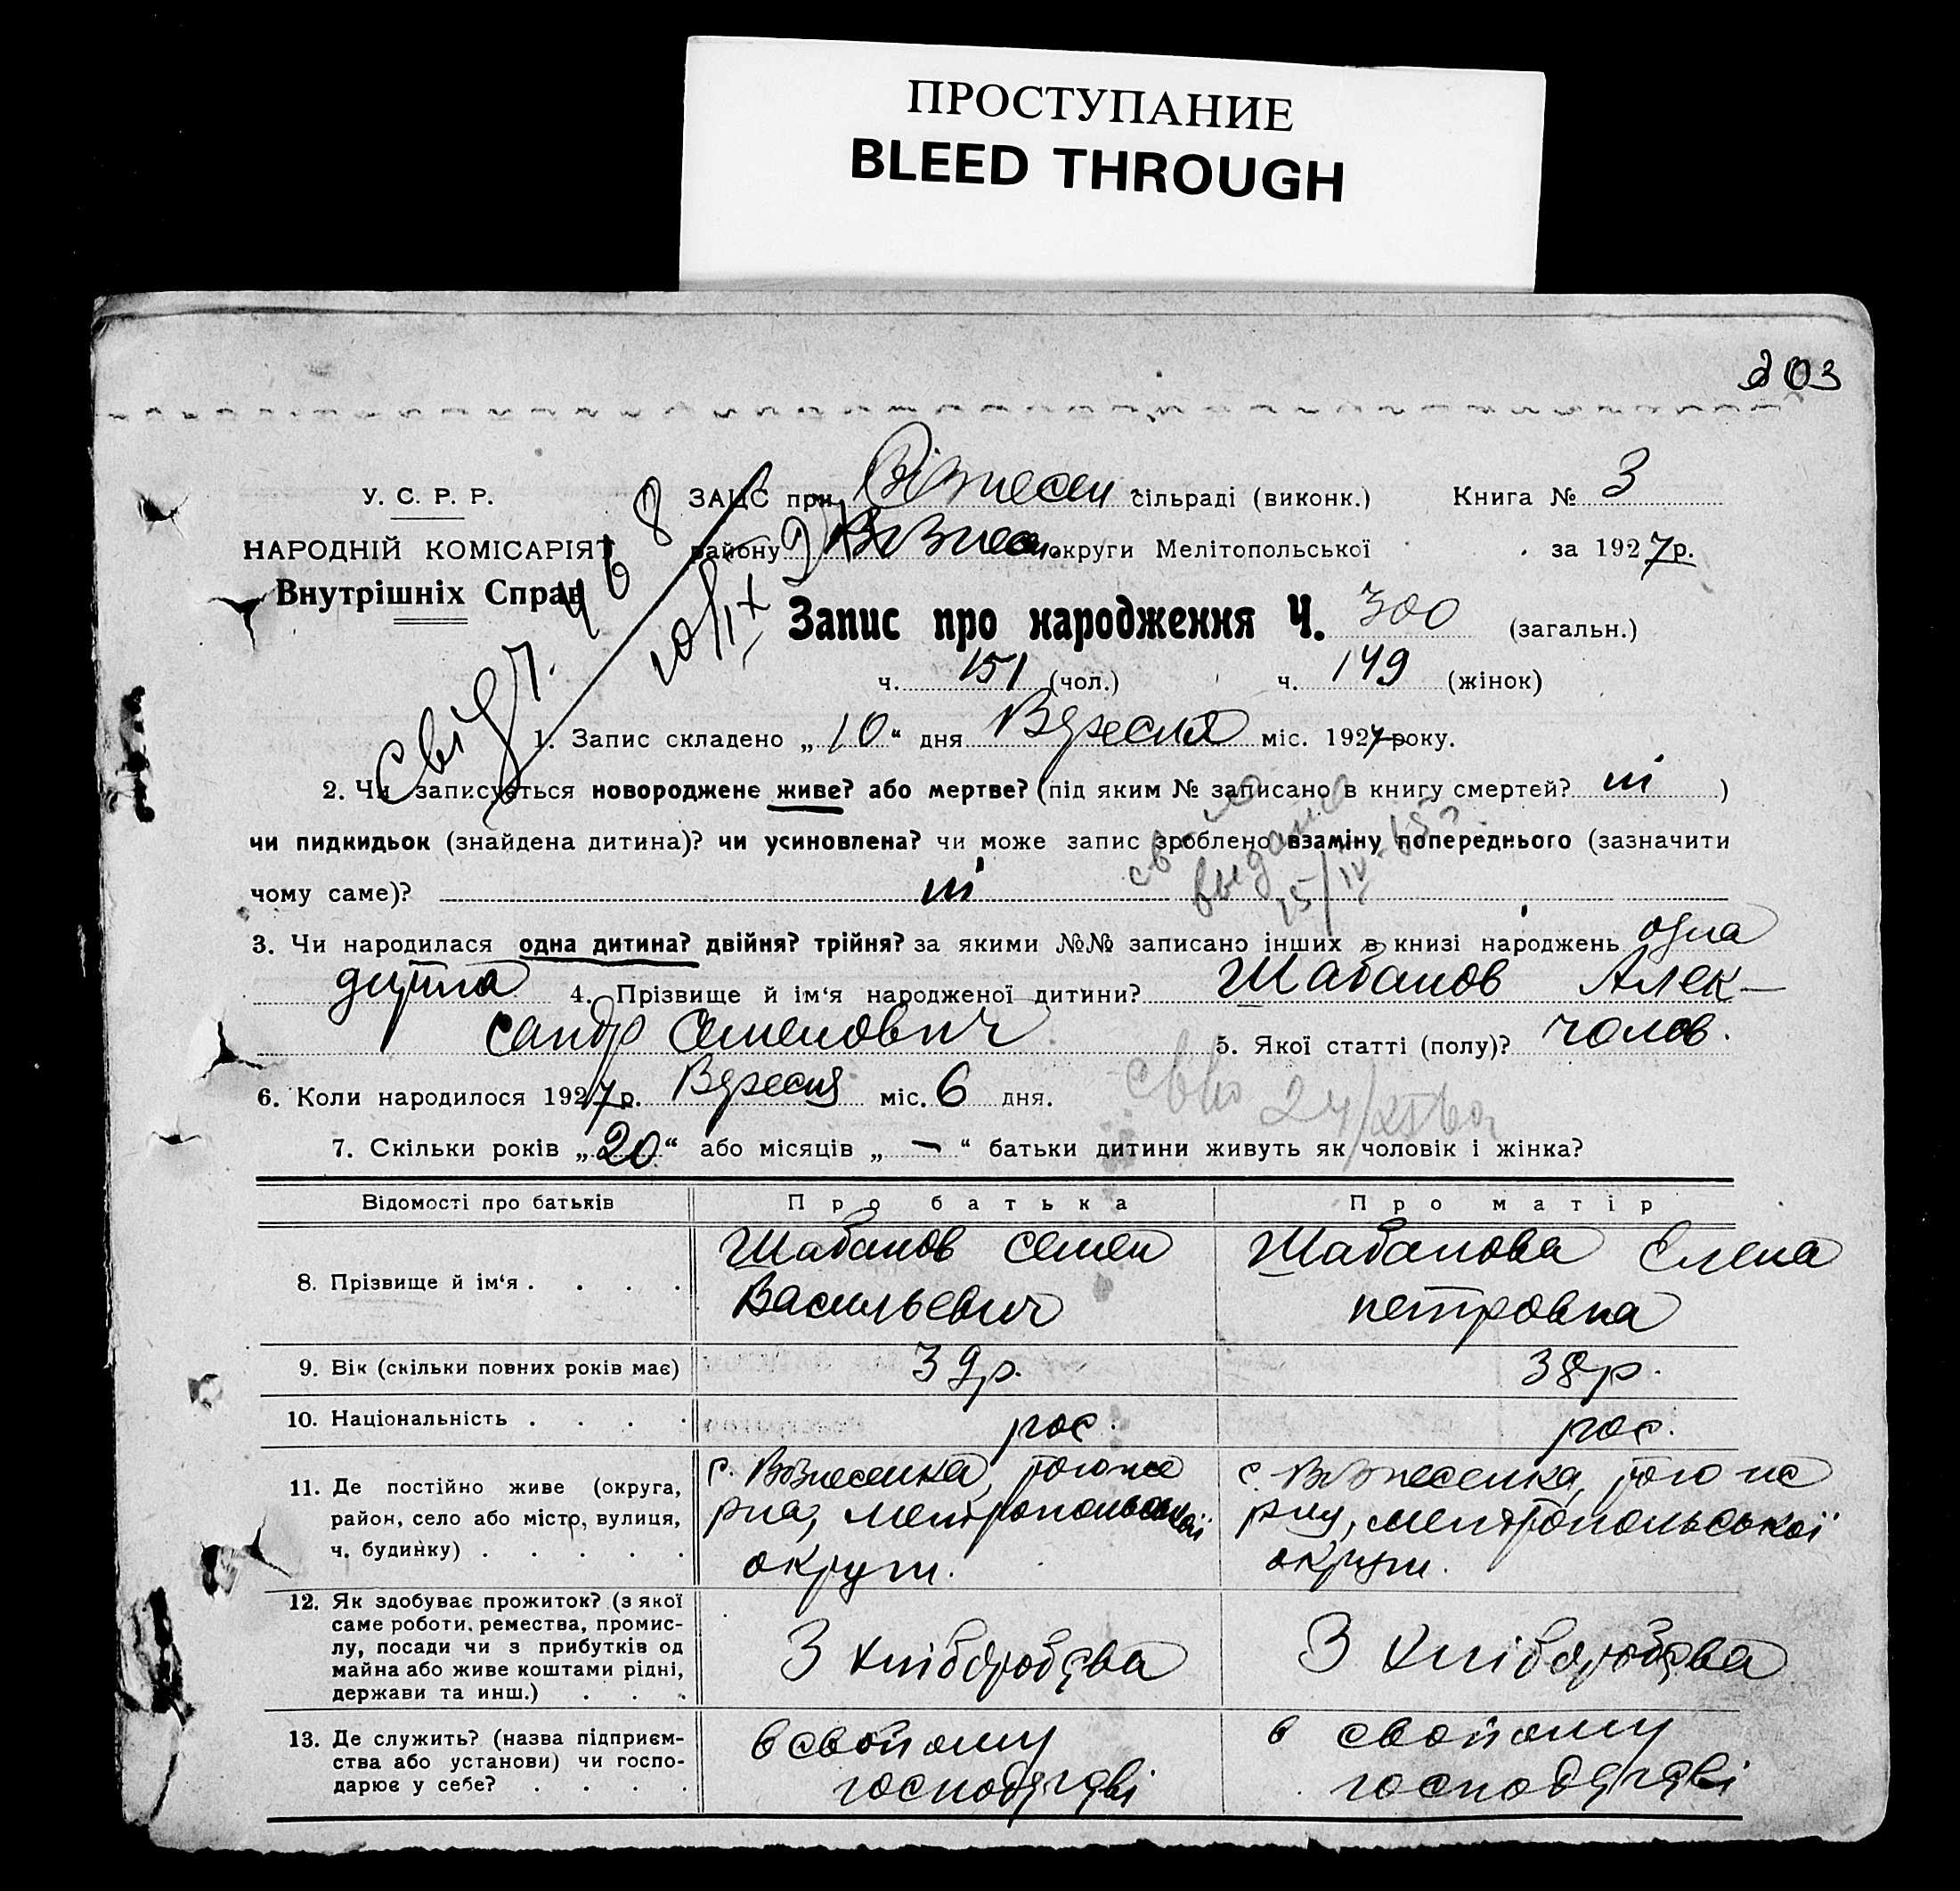 ПРОСТУПАНИЕ
BLEED THROUGH
203
У. С. Р. Р.
НАРОДНІЙ КОМІСАРІЯТ
Внутрішніх Справ
ЗАЦС при Візнесен сільраді (виконк.) Книга № 3
району Візнесен. округи Мелітопольської за 1927 р.
Запис про народження Ч. 300 (загальн.)
ч. 151 (чол.) ч. 149 (жінок)
1. Запис складено „ 10 “ дня Вересня міс. 1927 року.
2. Чи записується новороджене живе? або мертве? (під яким № записано в книгу смертей? ні )
чи пидкидьок (знайдена дитина)? чи усиновлена? чи може запис зроблено взаміну попереднього (зазначити
чому саме)? ні
3. Чи народилася одна дитина? двійня? трійня? за якими №№ записано інших в книзі народжень одна
дитина 4. Прізвище й ім‘я народженої дитини? Шабанов Алек-
сандр Семенович 5. Якої статті (полу)? чолов.
6. Коли народилося 1927 р. Вересня міс. 6 дня.
7. Скільки років „ 20 “ або місяців „ — “ батьки дитини живуть як чоловік і жінка?
Відомості про батьків Про батька Про матір
8. Прізвище й ім‘я . . . . Шабанов Семен Васильевич Шабанова Елена петровна
9. Вік (скільки повних років має) 39 р. 38 р.
10. Національність . . . . рос. рос.
11. Де постійно живе (округа, район, село або місто, вулиця, ч. будинку) . . . . . с. Вознесенка, того же р-на, Мелітопольської округи. с. Вознесенка, того же р-ну, мелітопольської округи.
12. Як здобуває прожиток? (з якої саме роботи, ремества, промислу, посади чи з прибутків од майна або живе коштами рідні, держави та инш.) . . . З хліборобства З хліборобства
13. Де служить? (назва підприємства або установи) чи господарює у себе? . . . . в свойому господарстві в свойому господарстві